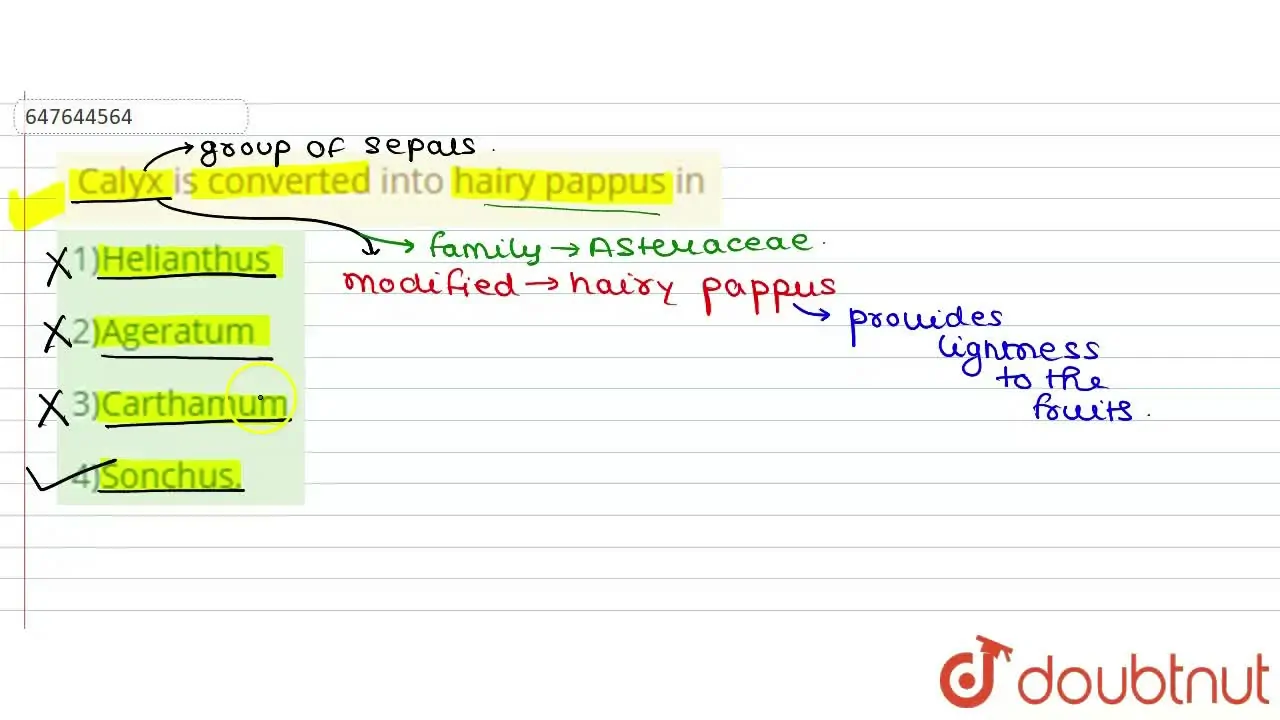 647644564
group of sepals.
Calyx is converted into hairy pappus in
family → Asteraceae.
1)Helianthus
modified → hairy pappus
provides
2)Ageratum
lightness
to the
3)Carthamum
fruits.
4)Sonchus.
doubtnut